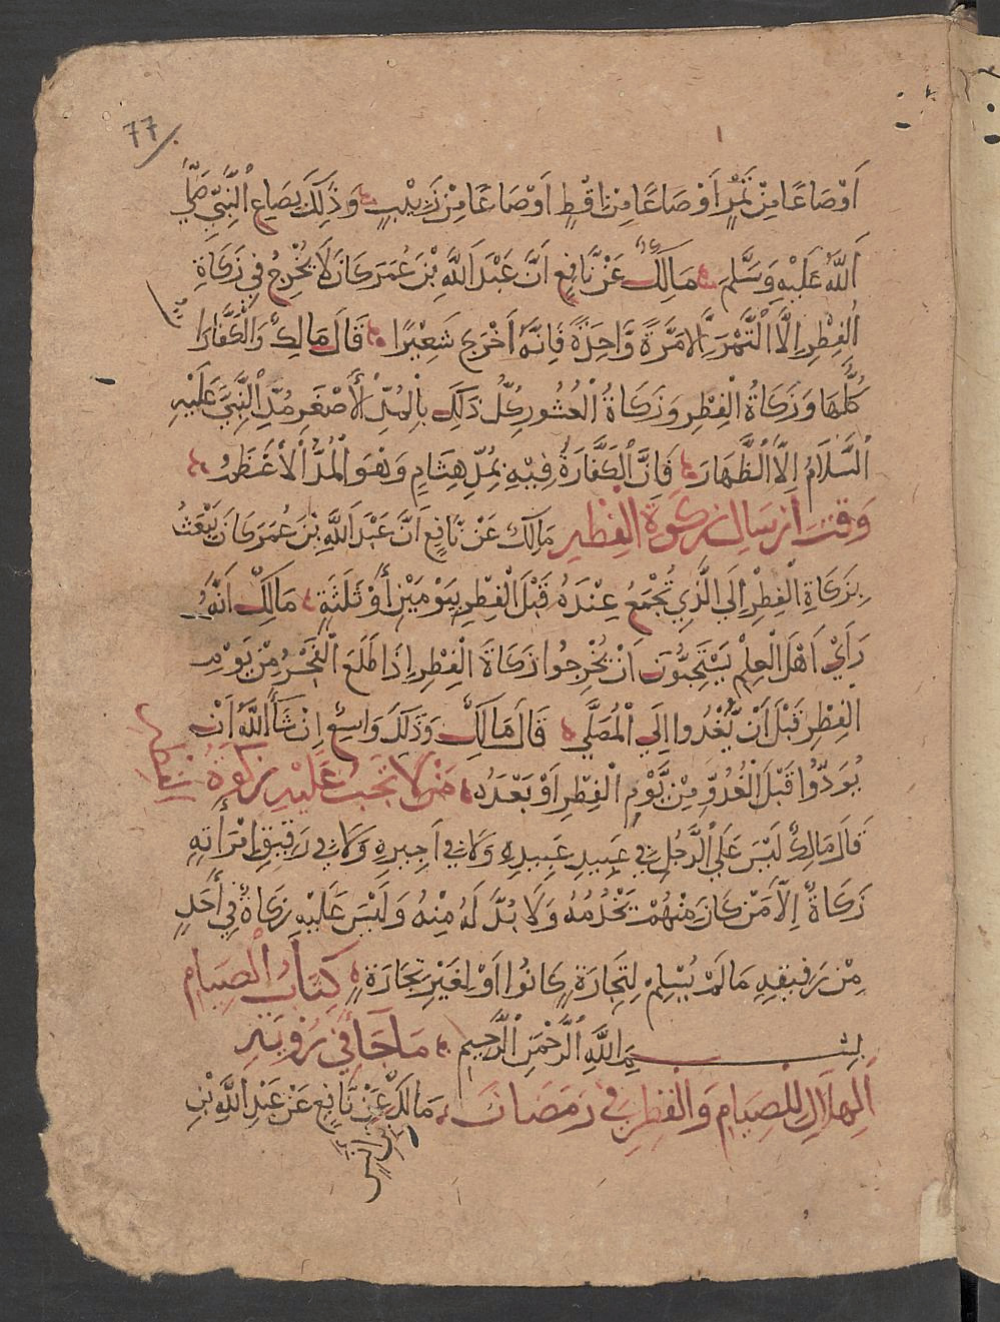 77
أَوْ صَاعًا مِنْ تَمْرٍ أَوْ صَاعًا مِنْ اقْطٍ أَوْ صَاعًا مِنْ زَبِيْبٍ وَذَلِكَ بِصَاعِ النَّبِيِّ صَلَّى
اللَّهُ عَلَيْهِ وَسَلَّمَ مَالِكٌ عَنْ نَّافِعٍ أَنَّ عَبْدَ اللَّهِ بْنَ عُمَرَ كَانَ لَا يُخْرِجُ فِي زَكَاةِ
الْفِطْرِ إِلَّا التَّمْرَ إِلَّا مَرَّةً وَّاحِدَةً فَإِنَّهُ أَخْرَجَ شَعِيْرًا قَالَ مَالِكٌ وَالْكَفَّارَاتُ
كُلُّهَا وَزَكَاةُ الْفِطْرِ وَزَكَاةُ الْعُشُورِ كُلُّ ذَلِكَ بِالْمُدِّ الْأَصْغَرِ مُدِّ النَّبِيِّ عَلَيْهِ
السَّلَامُ إِلَّا الظِّهَارَ فَإِنَّ الْكَفَّارَةَ فِيْهِ بِمُدِّ هِشَامٍ وَهُوَ الْمُدُّ الْأَعْظَمُ
وَقْتُ إِرْسَالِ زَكٰوةِ الْفِطْرِ مَالِكٌ عَنْ نَّافِعٍ أَنَّ عَبْدَ اللَّهِ بْنَ عُمَرَ كَانَ يَبْعَثُ
بِزَكَاةِ الْفِطْرِ إِلَى الَّذِي تُجْمَعُ عِنْدَهُ قَبْلَ الْفِطْرِ بِيَوْمَيْنِ أَوْ ثَلَثَةٍ مَالِكٌ أَنَّهُ
رَأَيْ أَهْلَ الْعِلْمِ يَسْتَحِبُّونَ أَنْ يُخْرِجُوا زَكَاةَ الْفِطْرِ إِذَا طَلَعَ الْفَجْرُ مِنْ يَوْمِ
الْفِطْرِ قَبْلَ أَنْ يَّغْدُوا إِلَى الْمُصَلَّى قَالَ مَالِكٌ وَذَلِكَ وَاسِعٌ إِنْ شَاءَ اللَّهُ أَنْ
يُوَدُّوا قَبْلَ الْغُدُوِّ مِنْ يَّوْمِ الْفِطْرِ أَوْ بَعْدَهُ مَنْ لَا تَجِبُ عَلَيْهِ زَكٰوةُ
قَالَ مَالِكٌ لَيْسَ عَلَى الرَّجُلِ فِي عَبِيدِ عَبِيدِهِ وَلَا فِي أَجِيرِهِ وَلَا فِي رَقِيقِ امْرَأَتِهِ
زَكَاةٌ إِلَّا مَنْ كَانَ مِنْهُمْ يَخْدُمُهُ وَلَا بُدَّ لَهُ مِنْهُ وَلَيْسَ عَلَيْهِ زَكَاةٌ فِي أَحَدٍ
مِنْ رَقِيقِهِ مَا لَمْ يُسْلِمْ لِتِجَارَةٍ كَانُوا أَوْ لِغَيْرِ تِجَارَةٍ كِتَابُ الصِّيَامِ
بِسْمِ اللَّهِ الرَّحْمَنِ الرَّحِيمِ مَا جَاءَ فِي رُؤْيَةِ
الْهِلَالِ لِلصِّيَامِ وَالْفِطْرِ فِي رَمَضَانَ مَالِكٌ عَنْ نَّافِعٍ عَنْ عَبْدِ اللَّهِ بْنِ